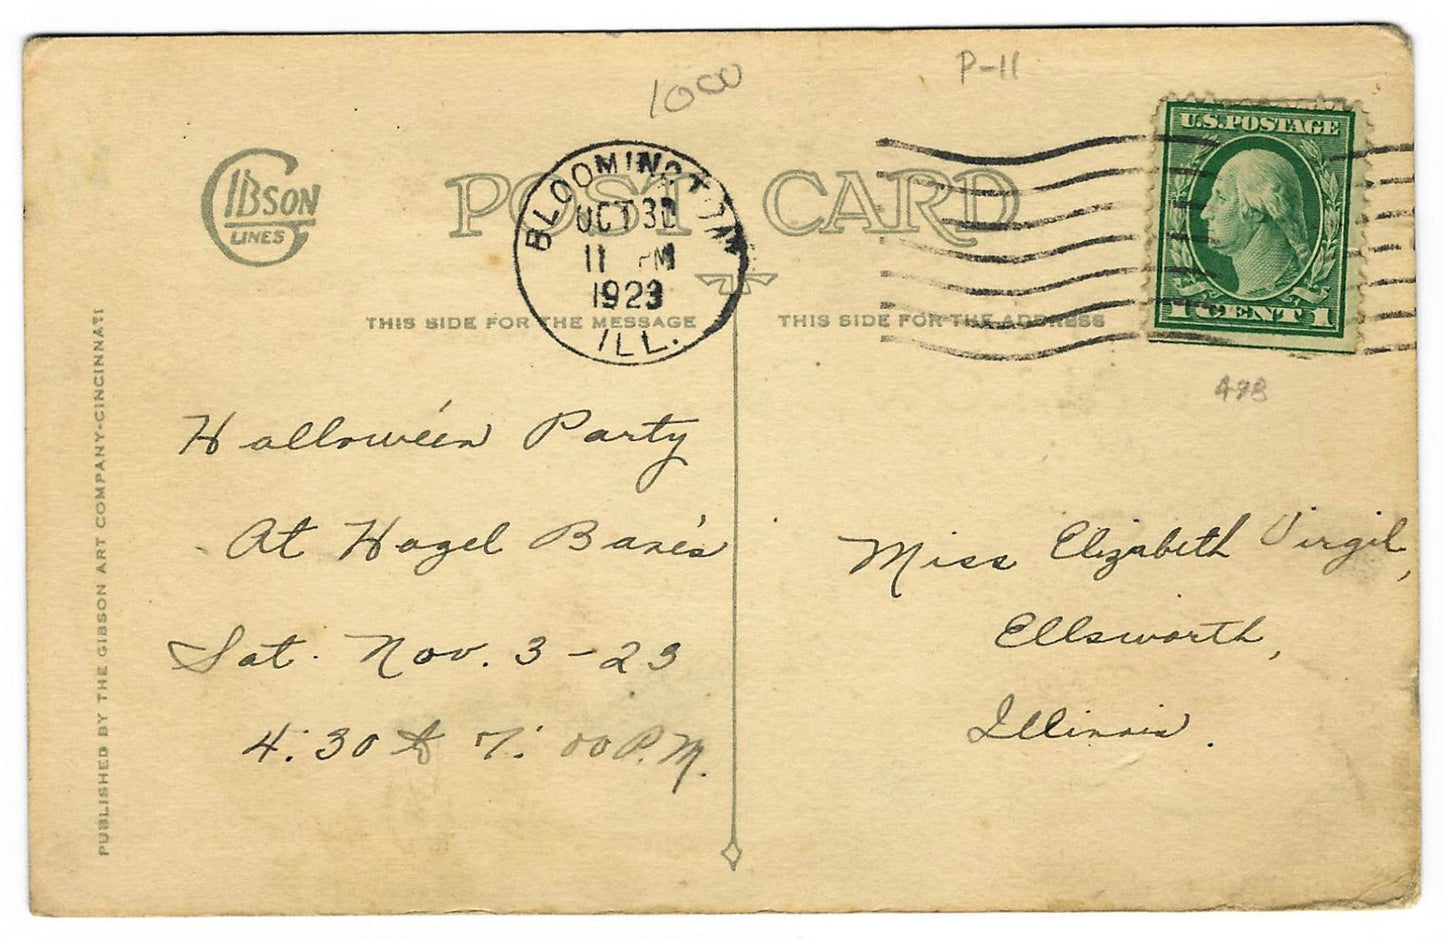 1000
P-11
GIBSON
LINES
POST CARD
BLOOMINGTON
OCT 30
11 PM
1923
ILL.
U.S. POSTAGE
1 CENT 1
THIS SIDE FOR THE MESSAGE
THIS SIDE FOR THE ADDRESS
498
Hallowe'en Party
At Hazel Bane's
Sat. Nov. 3-23
4:30 to 7:00 P.M.
Miss Elizabeth Virgil,
Ellsworth,
Illinois.
PUBLISHED BY THE GIBSON ART COMPANY-CINCINNATI